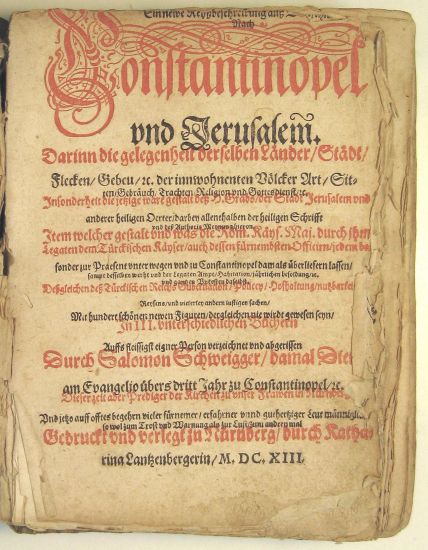 Ein newe Reyßbeschreibung auß
Nach
Constantinopel
vnd Jerusalem.
Darinn die gelegenheit derselben Länder/ Städt/
Flecken/ Gebeu/ ꝛc. der innwohnenten Völcker Art/ Sit-
ten/ Gebräuch/ Trachten/ Religion vnd Gottesdienst/ ꝛc.
Insonderheit die jetzige ware gestalt deß H. Grabs/ der Stadt Jerusalem vnd
anderer heiligen Oerter/ darbey allenthalben der heiligen Schrifft
vnd deß
Item welcher gestalt vnd was die Röm. Käys. Maj. durch ihren
Legaten dem Türckischen Käyser/ auch dessen fürnembsten Officirn/ jedem be-
sonder zur Praesent vnter wegen vnd zu Constantinopel damals überliefern lassen/
sampt desselben macht vnd der Legaten Ampt/ Habitation/ jährlichen besoldung/ ꝛc.
vnd gantzen
Deßgleichen deß Türckischen Reichs Gubernation/ Policey/ Hofhaltung/ nutzbarkeit
Reysens/ vnd vielerley andern lustigen sachen/
Mit hundert schönen newen Figuren/ dergleichen nie wirdt gewesen seyn/
In III. vnterschiedlichen Büchern
Auffs fleissigst eigner Person verzeichnet vnd abgerissen
Durch Salomon Schweigger/ damal Die
am Evangelio übers dritt Jahr zu Constantinopel/ ꝛc.
Dieser zeit aber Prediger der Kirchen zu vnser Frawen in
Vnd jetzo auff offtes begehren vieler fürnemer/ erfahrner vnnd guthertziger Leut
so wol zum Trost vnd Warnung als zur ander mal
Gedruckt vnd verlegt zu Nürnberg/ durch Katha-
rina Lantzenbergerin/ M. DC. XIII.